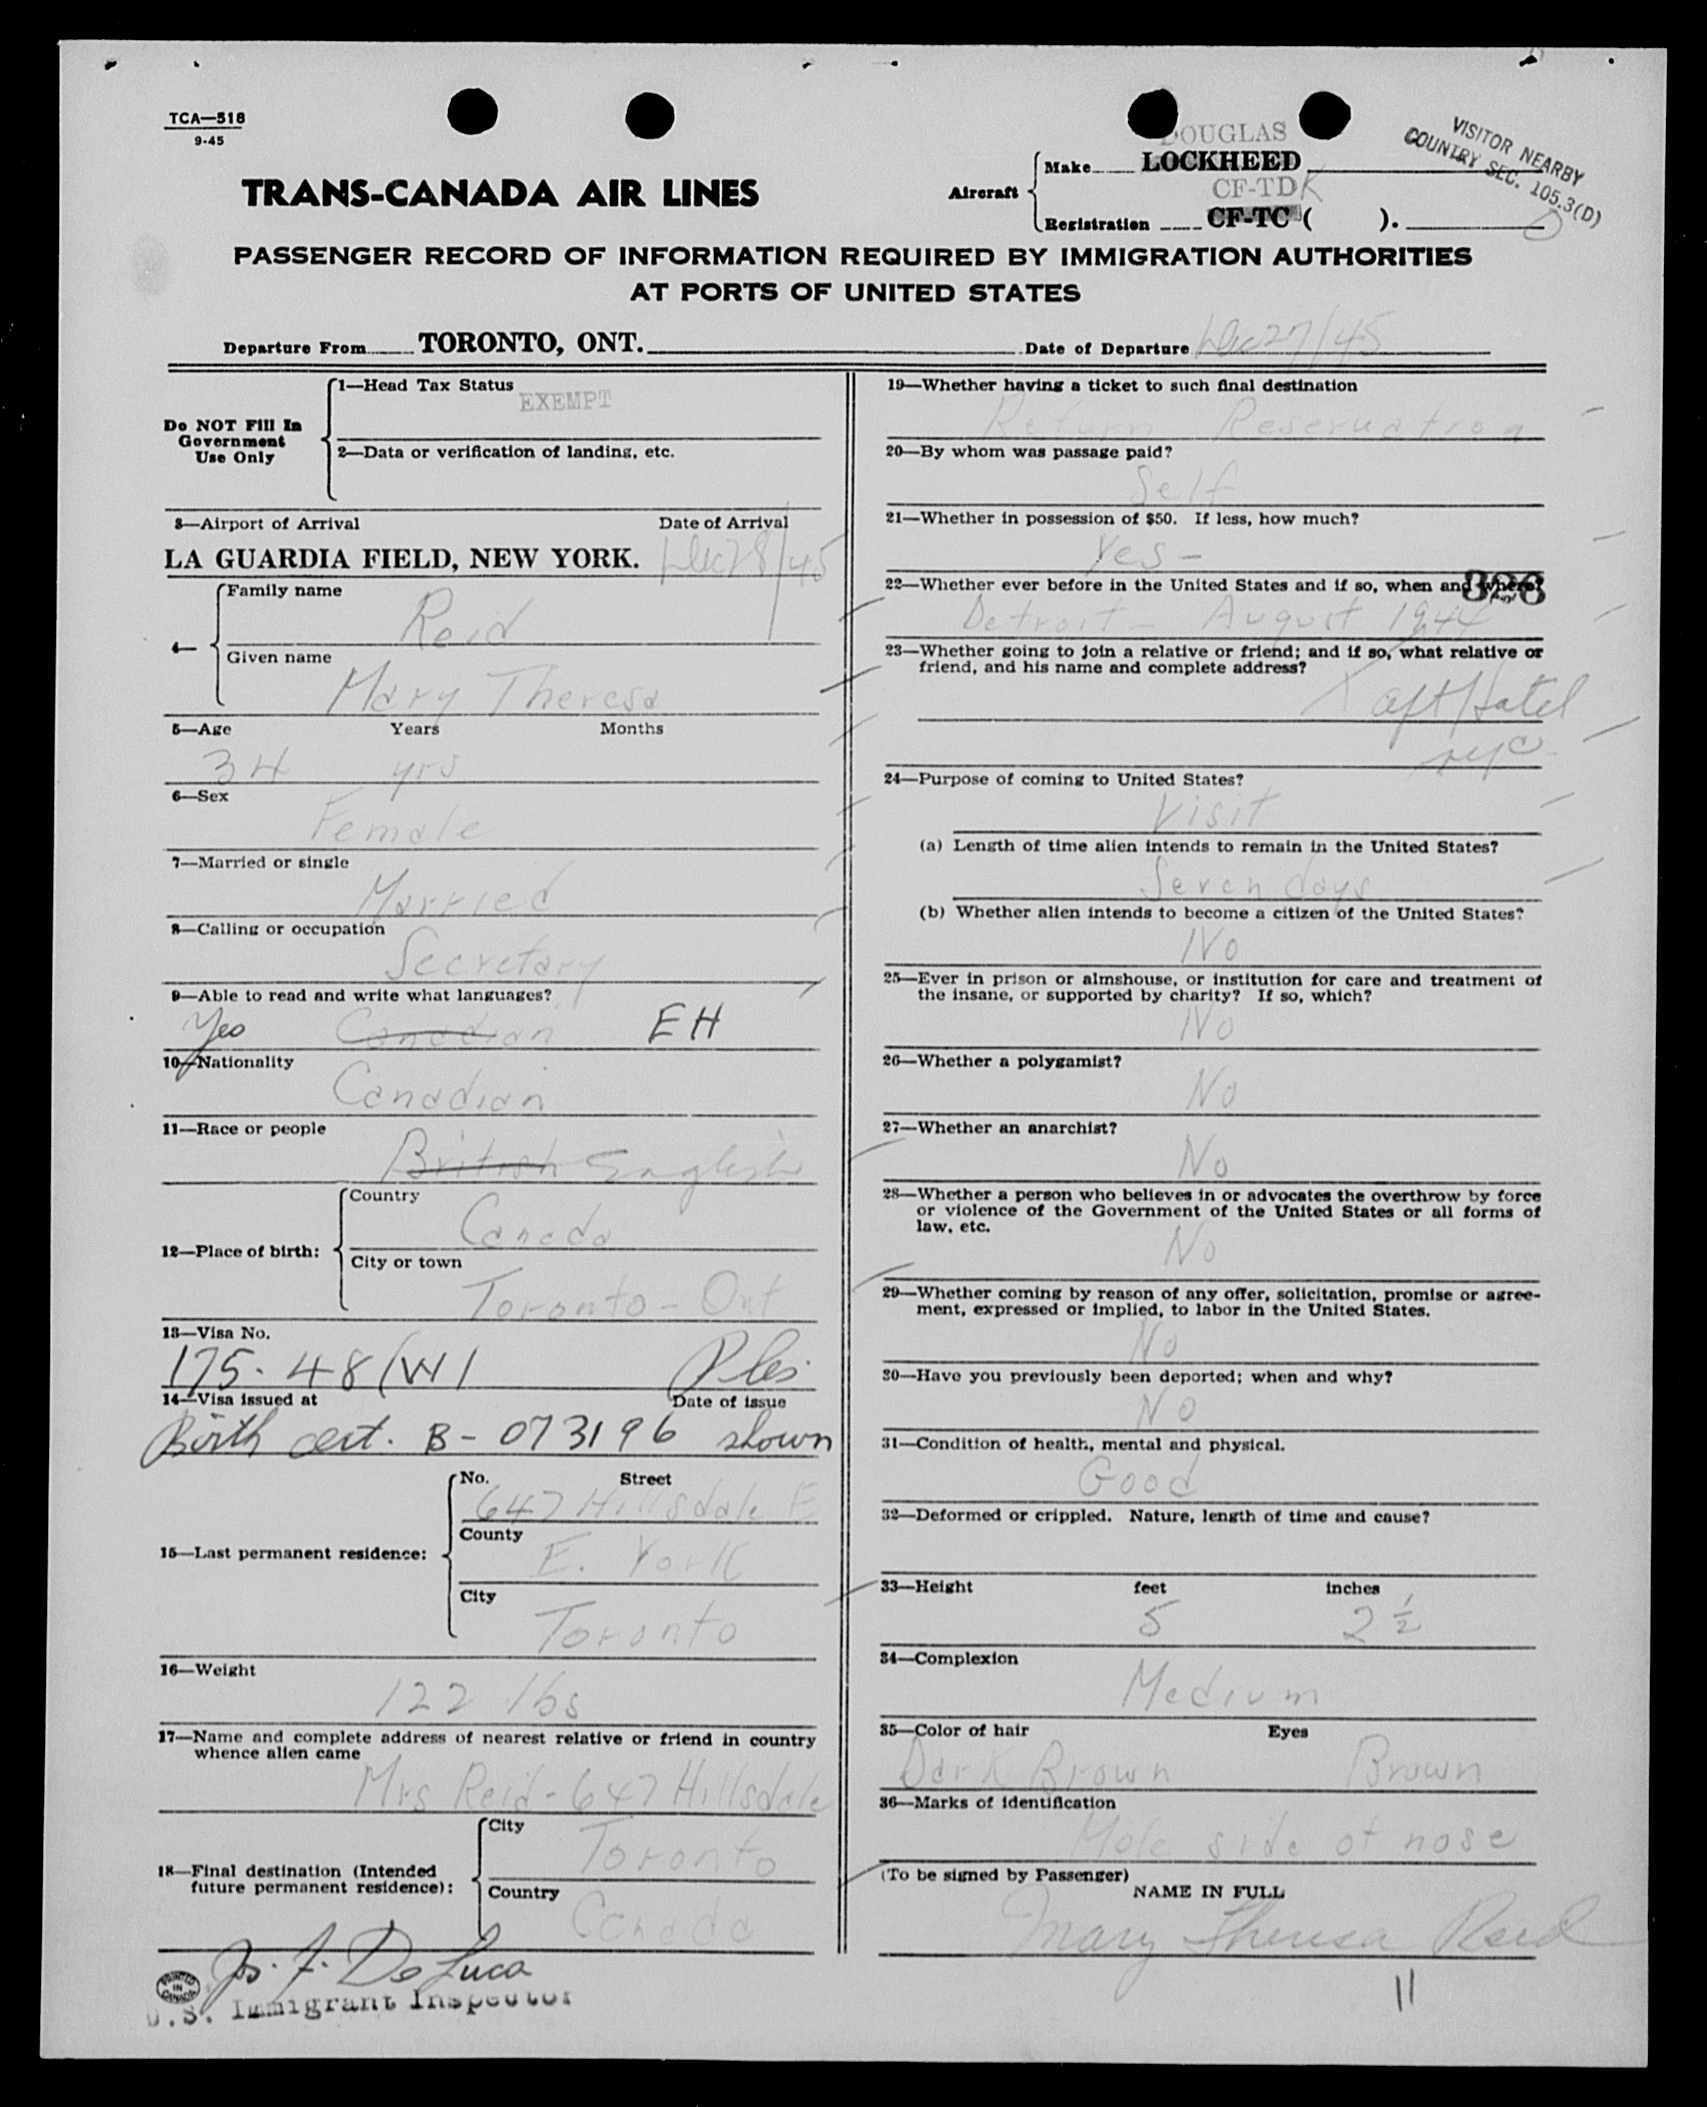 TCA—518
9-45
DOUGLAS
VISITOR NEARBY
COUNTRY SEC. 105.3(D)
Make LOCKHEED
TRANS-CANADA AIR LINES
Aircraft
CF-TDK
Registration CF-TC ( ).
PASSENGER RECORD OF INFORMATION REQUIRED BY IMMIGRATION AUTHORITIES
AT PORTS OF UNITED STATES
Departure From TORONTO, ONT. Date of Departure Dec 27/45
Do NOT Fill In
Government
Use Only
1—Head Tax Status
EXEMPT
2—Data or verification of landing, etc.
3—Airport of Arrival Date of Arrival
LA GUARDIA FIELD, NEW YORK. Dec 28/45
4—
Family name
Reid
Given name
Mary Theresa
5—Age Years Months
34 yrs
6—Sex
Female
7—Married or single
Married
8—Calling or occupation
Secretary
9—Able to read and write what languages?
Yes Canadian EH
10—Nationality
Canadian
11—Race or people
British English
12—Place of birth:
Country
Canada
City or town
Toronto - Ont
13—Visa No.
175-48/W1
14—Visa issued at Date of issue
Birth cert. B-073196 shown
15—Last permanent residence:
No. Street
647 Hillsdale E
County
E. York
City
Toronto
16—Weight
122 lbs
17—Name and complete address of nearest relative or friend in country
whence alien came
Mrs Reid - 647 Hillsdale
18—Final destination (Intended
future permanent residence):
City
Toronto
Country
Canada
Js. J. De Luca
PRINTED IN CANADA
U.S. Immigrant Inspector
19—Whether having a ticket to such final destination
Return Reservation
20—By whom was passage paid?
Self
21—Whether in possession of $50. If less, how much?
Yes -
22—Whether ever before in the United States and if so, when and where?
326
Detroit - August 1944
23—Whether going to join a relative or friend; and if so, what relative or
friend, and his name and complete address?
Taft Hotel
nyc
24—Purpose of coming to United States?
Visit
(a) Length of time alien intends to remain in the United States?
Seven days
(b) Whether alien intends to become a citizen of the United States?
No
25—Ever in prison or almshouse, or institution for care and treatment of
the insane, or supported by charity? If so, which?
No
26—Whether a polygamist?
No
27—Whether an anarchist?
No
28—Whether a person who believes in or advocates the overthrow by force
or violence of the Government of the United States or all forms of
law, etc.
No
29—Whether coming by reason of any offer, solicitation, promise or agree-
ment, expressed or implied, to labor in the United States.
No
30—Have you previously been deported; when and why?
No
31—Condition of health, mental and physical.
Good
32—Deformed or crippled. Nature, length of time and cause?
33—Height feet inches
5 2½
34—Complexion
Medium
35—Color of hair Eyes
Dark Brown Brown
36—Marks of identification
Mole side of nose
(To be signed by Passenger)
NAME IN FULL
Mary Theresa Reid
11